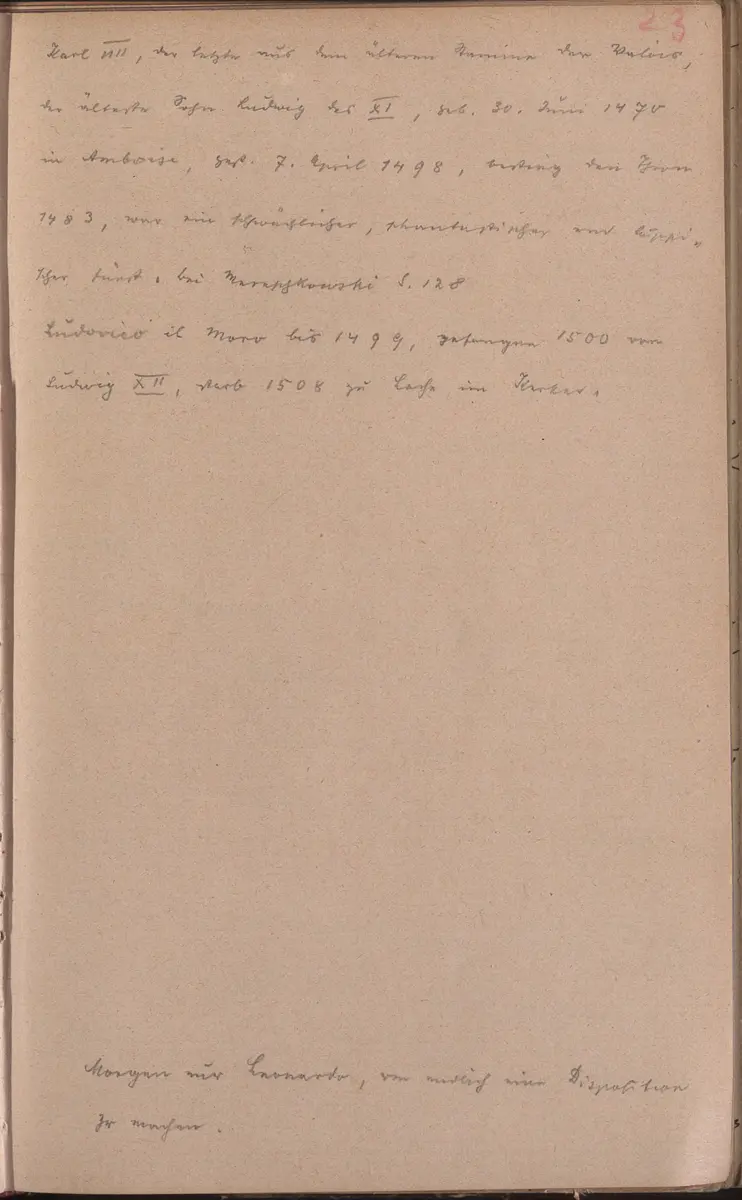 23
Karl VIII, der letzte aus dem älteren Stamme der Valois,
der älteste Sohn Ludwig des XI, geb. 30. Juni 1470
in Amboise, gest. 7. April 1498, bestieg den Thron
1483, war ein schwächlicher, phantastischer und
scher Fürst. bei Mereschkowski S. 128
Ludovico il Moro bis 1499, gefangen 1500 von
Ludwig XII, starb 1508 zu Loche im Kerker.
Morgen nur Leonardo, um endlich eine Disposition
zu machen.